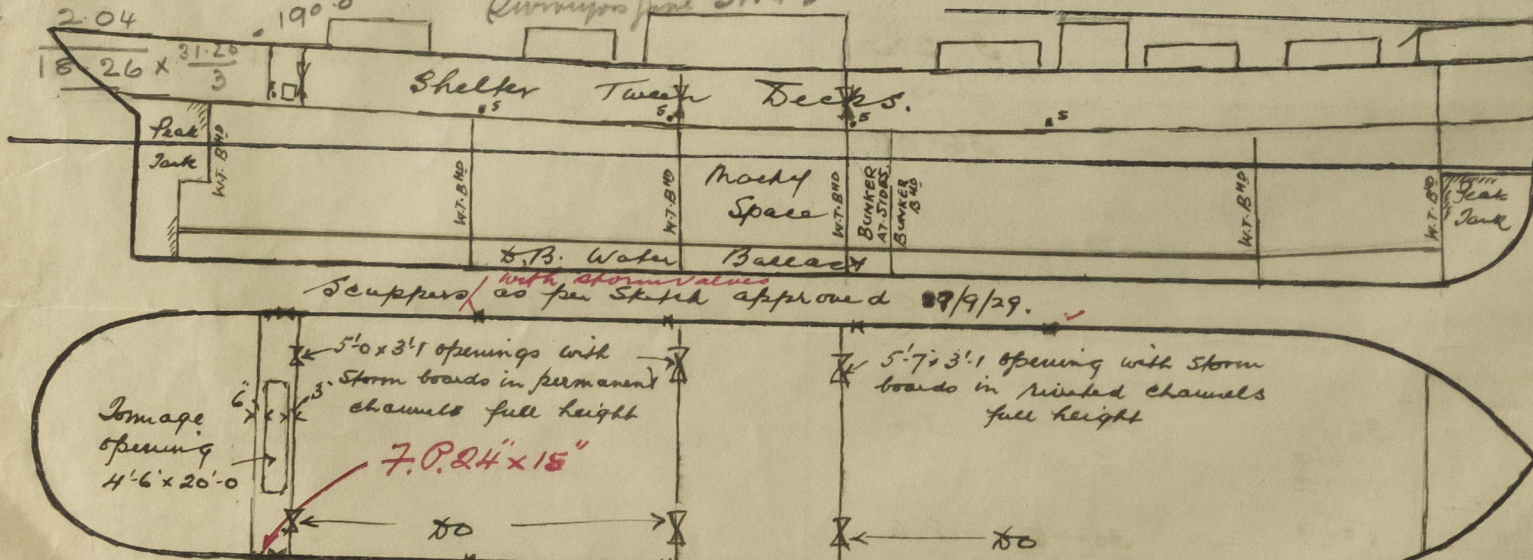 2.04
18.26 × 31.26
3
190.0
Surveyors
Shelter Tween Decks.
s
s
s
s
Peak
Tank
W.T. BHD
W.T. BHD
W.T. BHD
Machy
Space
W.T. BHD
BUNKER
AT SIDES
BUNKER
BHD
W.T. BHD
W.T. BHD
Peak
Tank
D.B. Water Ballast
with storm valves
Scuppers / as per Sketch approved 27/9/29.
5'-0 x 3'-1 openings with
Storm boards in permanent
channels full height
5'-7 x 3'-1 opening with Storm
boards in riveted channels
full height
6"
3"
Tonnage
opening
4'-6 x 20'-0
F.P. 24" x 15"
DO
DO